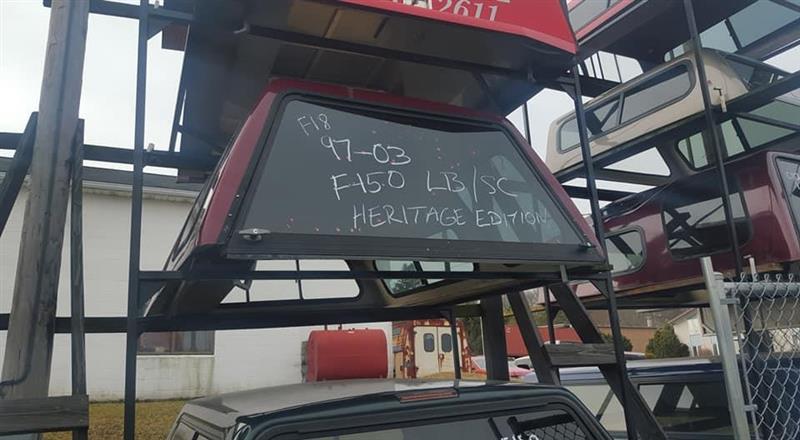 2611
F18
97-03
F-150 LB/SC
HERITAGE EDITION